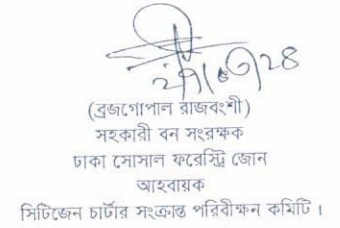 (ব্রজগোপাল রাজবংশী)
সহকারী বন সংরক্ষক
ঢাকা সোসাল ফরেস্ট্রি জোন
আহবায়ক
সিটিজেন চার্টার সংক্রান্ত পরিবীক্ষন কমিটি।